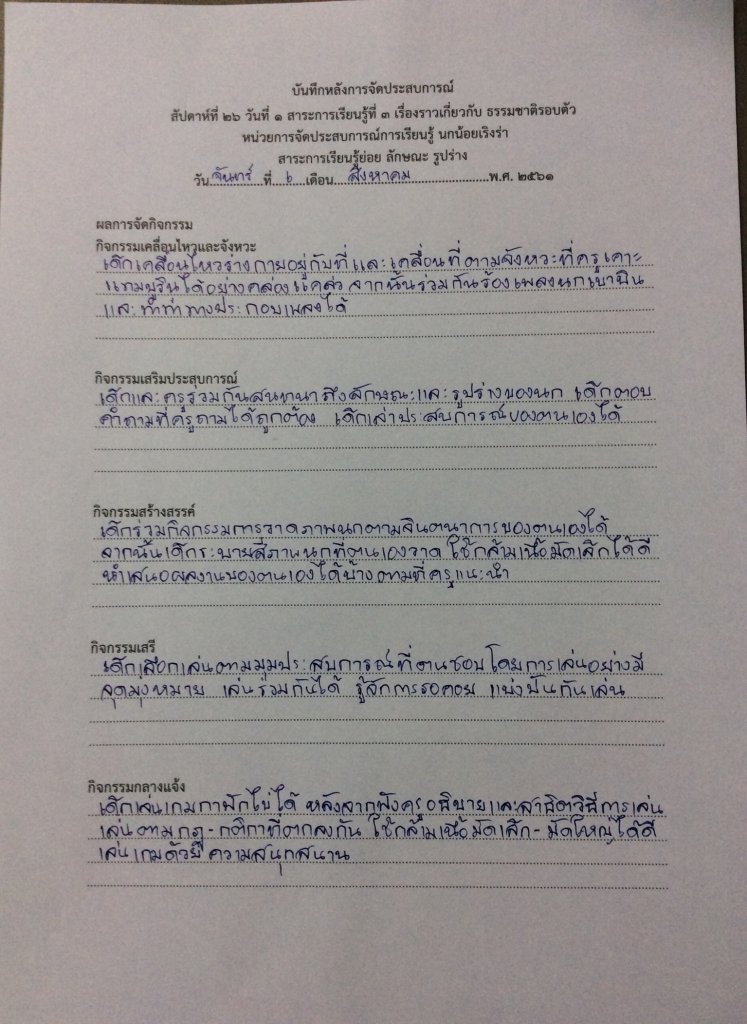 บันทึกหลังการจัดประสบการณ์
สัปดาห์ที่ ๒๖ วันที่ ๑ สาระการเรียนรู้ที่ ๓ เรื่องราวเกี่ยวกับ ธรรมชาติรอบตัว
หน่วยการจัดประสบการณ์การเรียนรู้ นกน้อยเริงร่า
สาระการเรียนรู้ย่อย ลักษณะ รูปร่าง
วัน จันทร์ ที่ ๖ เดือน สิงหาคม พ.ศ. ๒๕๖๑
ผลการจัดกิจกรรม
กิจกรรมเคลื่อนไหวและจังหวะ
เด็กเคลื่อนไหวร่างกายอยู่กับที่และเคลื่อนที่ตามจังหวะที่ครูเคาะ
แทมบูรินได้อย่างคล่องแคล่ว จากนั้นร่วมกันร้องเพลงนกเขาบิน
และทำท่าทางประกอบเพลงได้
กิจกรรมเสริมประสุบการณ์
เด็กและครูร่วมกันสนทนาถึงลักษณะและรูปร่างของนก เด็กตอบ
คำถามที่ครูถามได้ถูกต้อง เด็กเล่าประสบการณ์ของตนเองได้
กิจกรรมสร้างสรรค์
เด็กร่วมกิจกรรมการวาดภาพนกตามจินตนาการของตนเองได้
จากนั้นเด็กระบายสีภาพนกที่ตนเองวาด ใช้กล้ามเนื้อมัดเล็กได้ดี
นำเสนอผลงานของตนเองได้บ้างตามที่ครูแนะนำ
กิจกรรมเสรี
เด็กเลือกเล่นตามมุมประสบการณ์ที่ตนชอบโดยการเล่นอย่างมี
จุดมุ่งหมาย เล่นร่วมกันได้ รู้จักการรอคอย แบ่งปันกันเล่น
กิจกรรมกลางแจ้ง
เด็กเล่นเกมกาฟักไข่ได้ หลังจากฟังครูอธิบายและสาธิตวิธีการเล่น
เล่นตามกฎ - กติกาที่ตกลงกัน ใช้กล้ามเนื้อมัดเล็ก - มัดใหญ่ได้ดี
เล่นเกมด้วยความสนุกสนาน